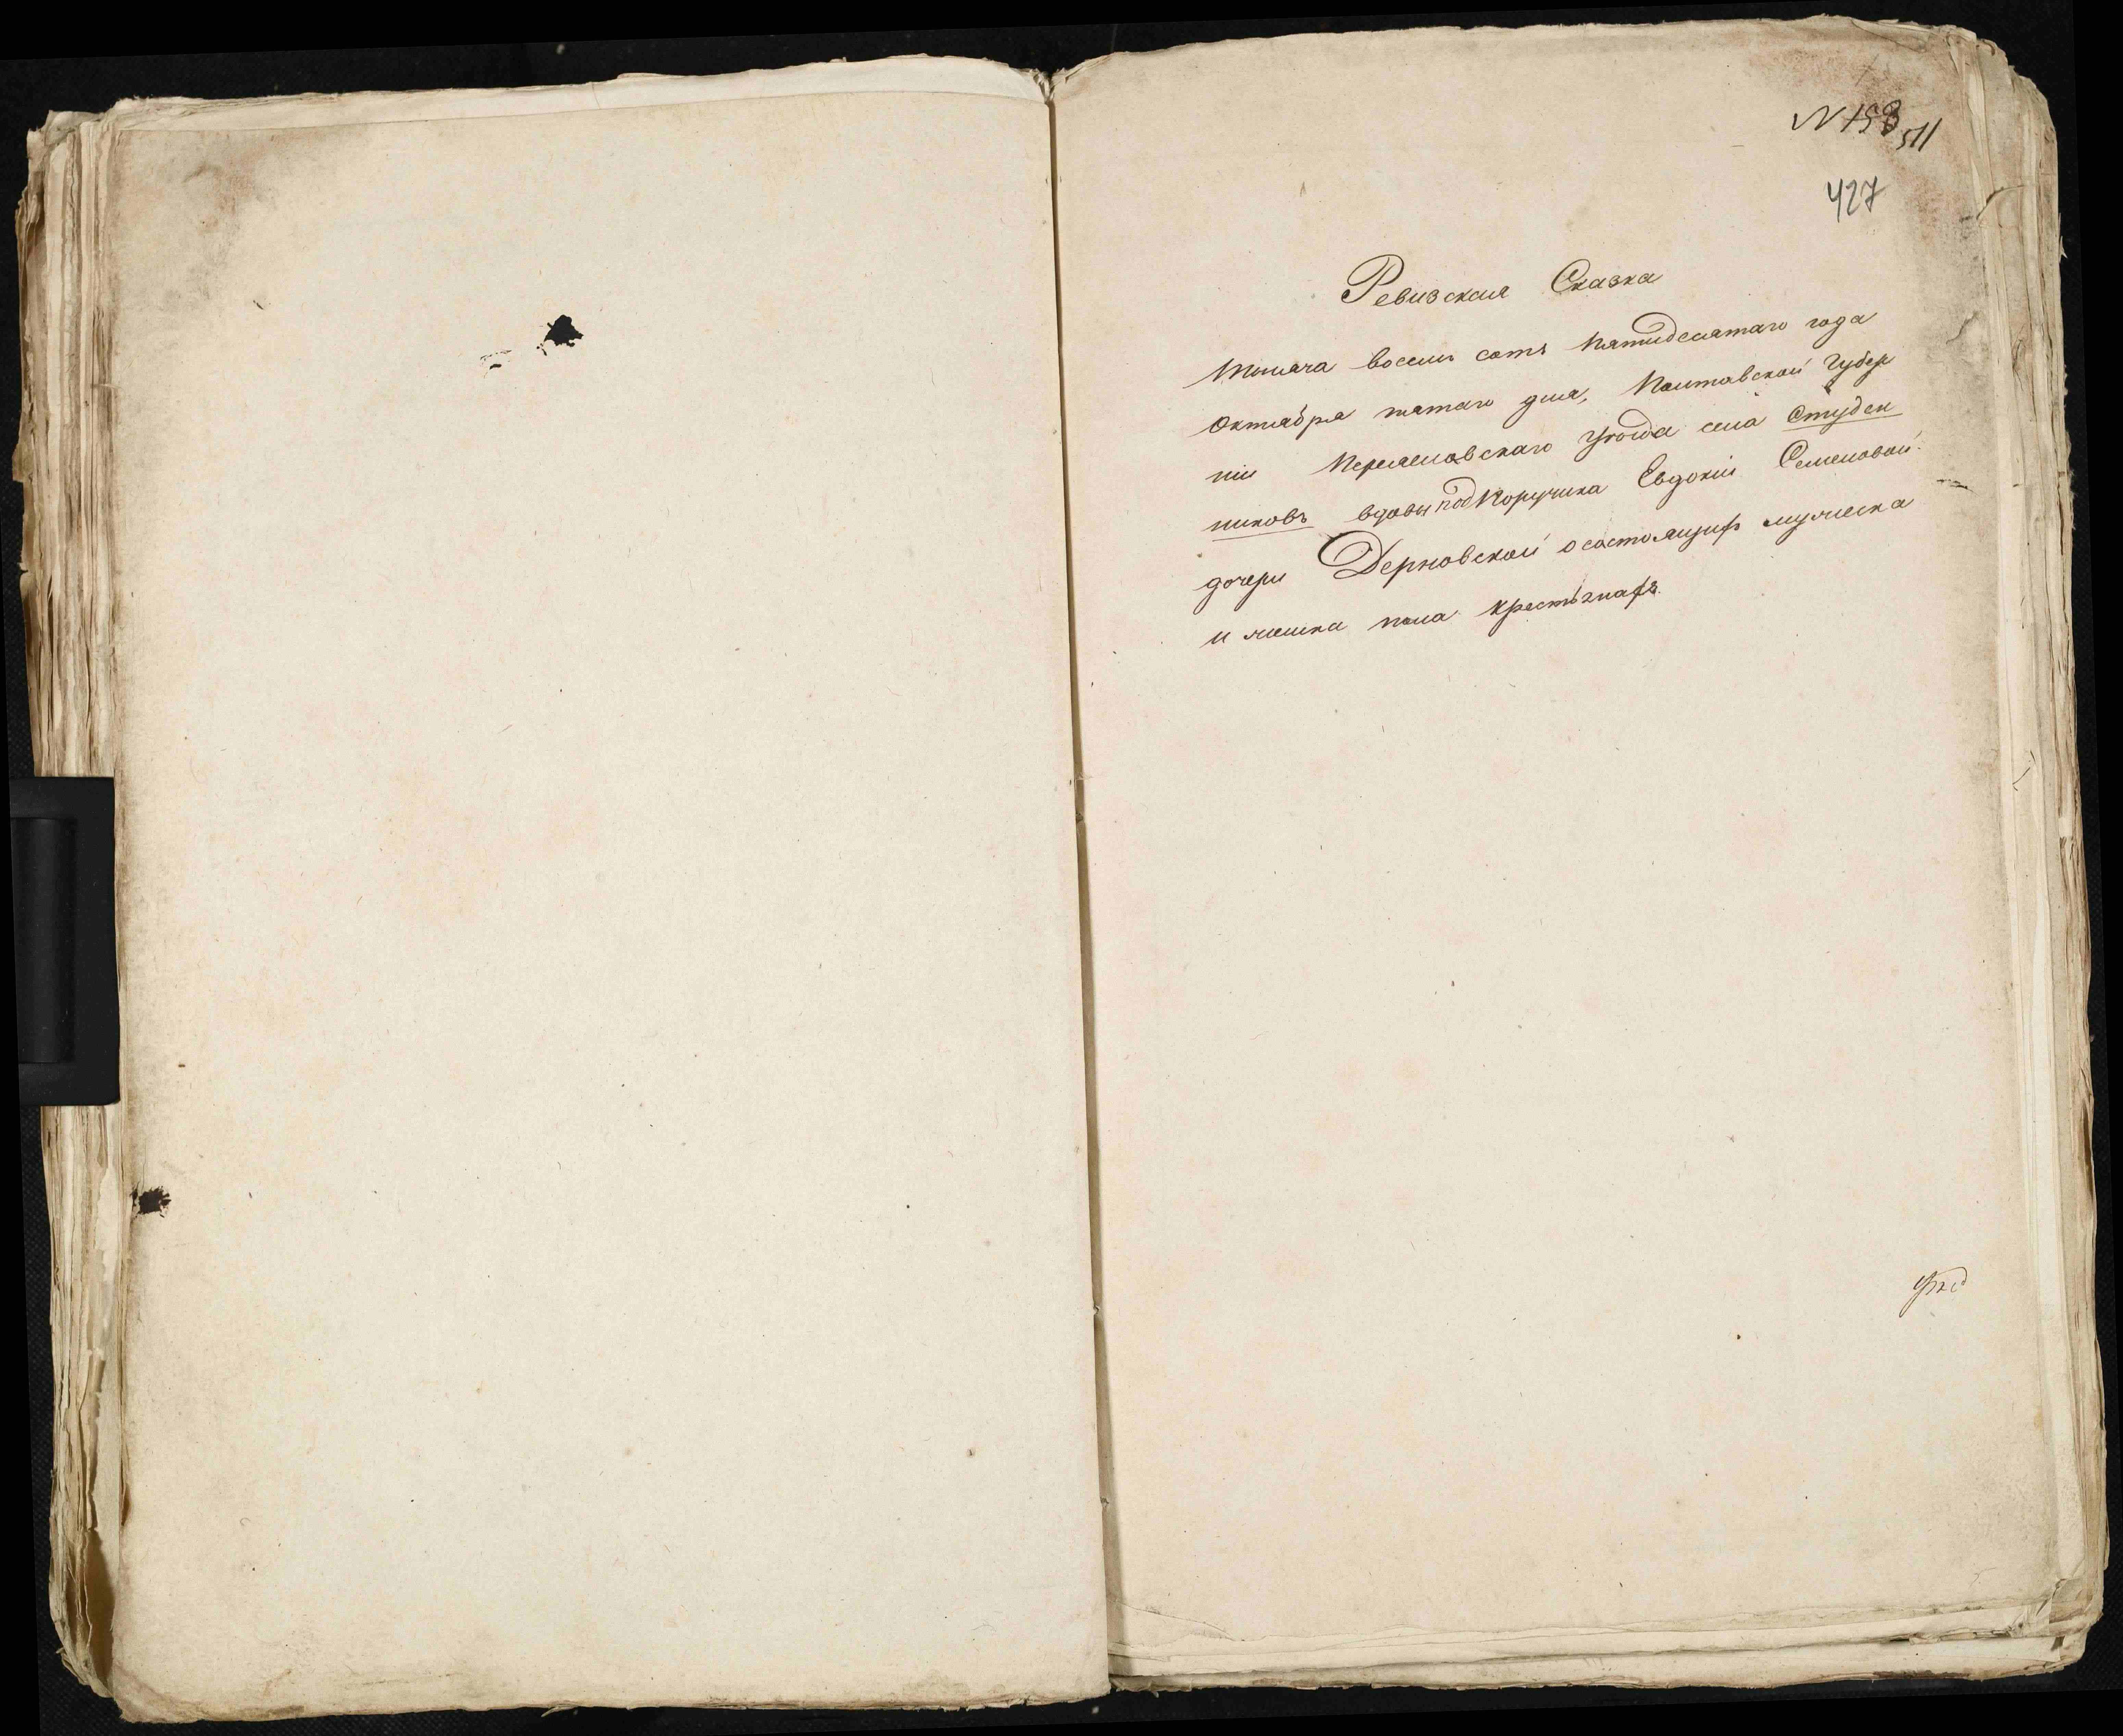 N 158
511
427
Ревизская Сказка
тысяча восемь сотъ пятидесятаго года
Октября пятаго дня, Полтавской Губер
ніи Переяславскаго Уѣзда села Студен
никовъ вдовы подпоручика Евдокіи Семеновой
дочери Дерновской о состоящихъ мужеска
и женска пола крестьянахъ.